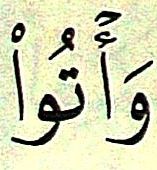 وَأُتُواْ